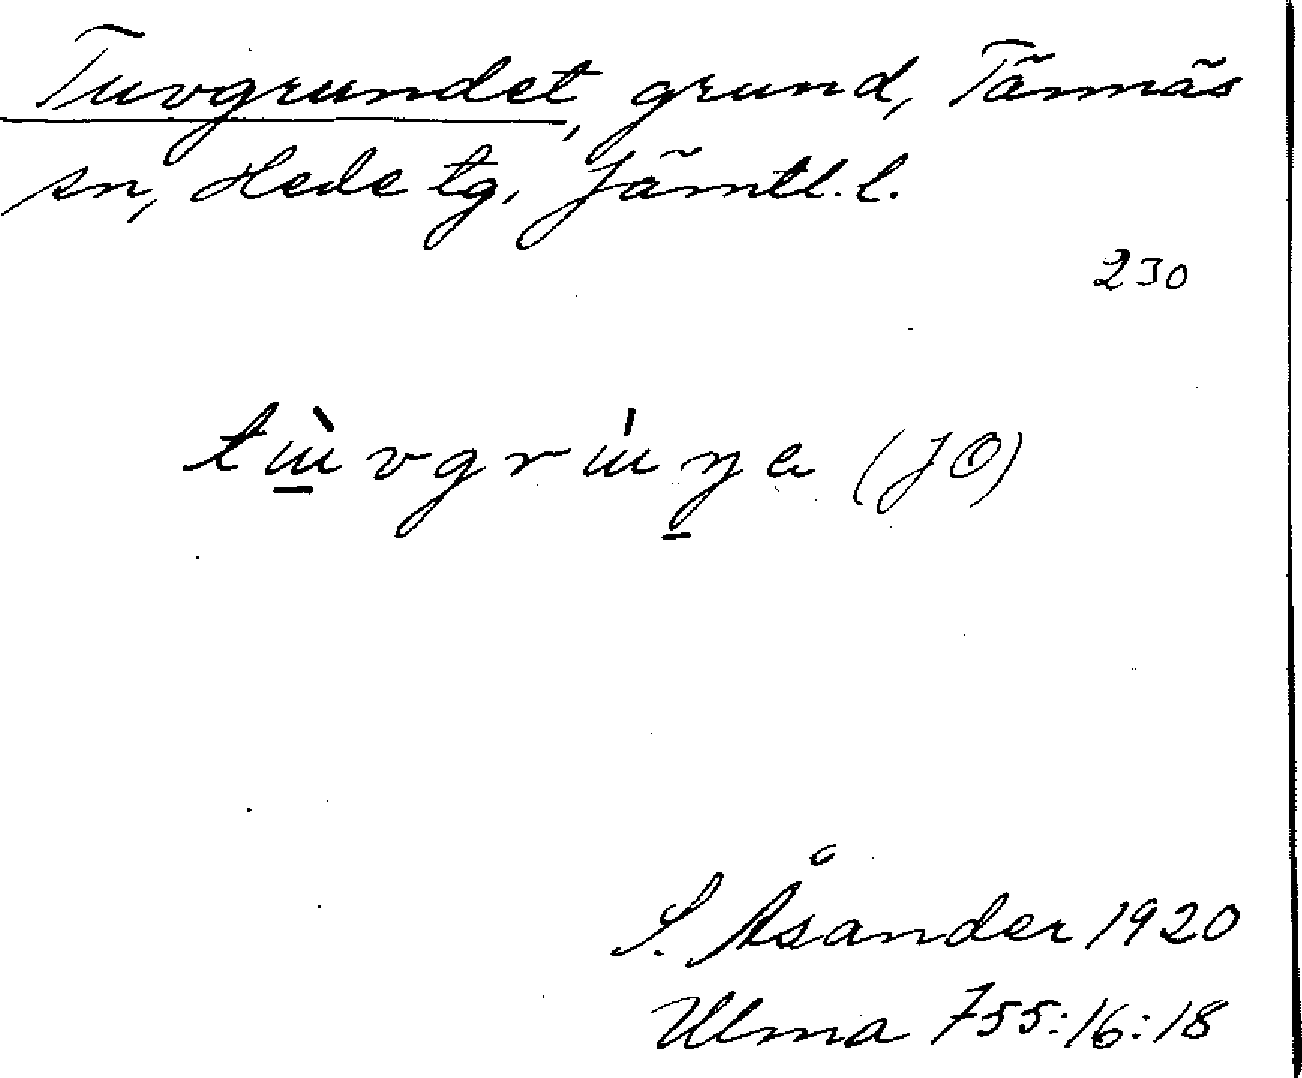 Tuvgrundet, grund, Tännäs
sn, Hede tg, Jämtl. l.
230
tɯ̱̀vgrɯ́ŋ̱a (JO)
S. Åsander 1920
Ulma 755:16:18